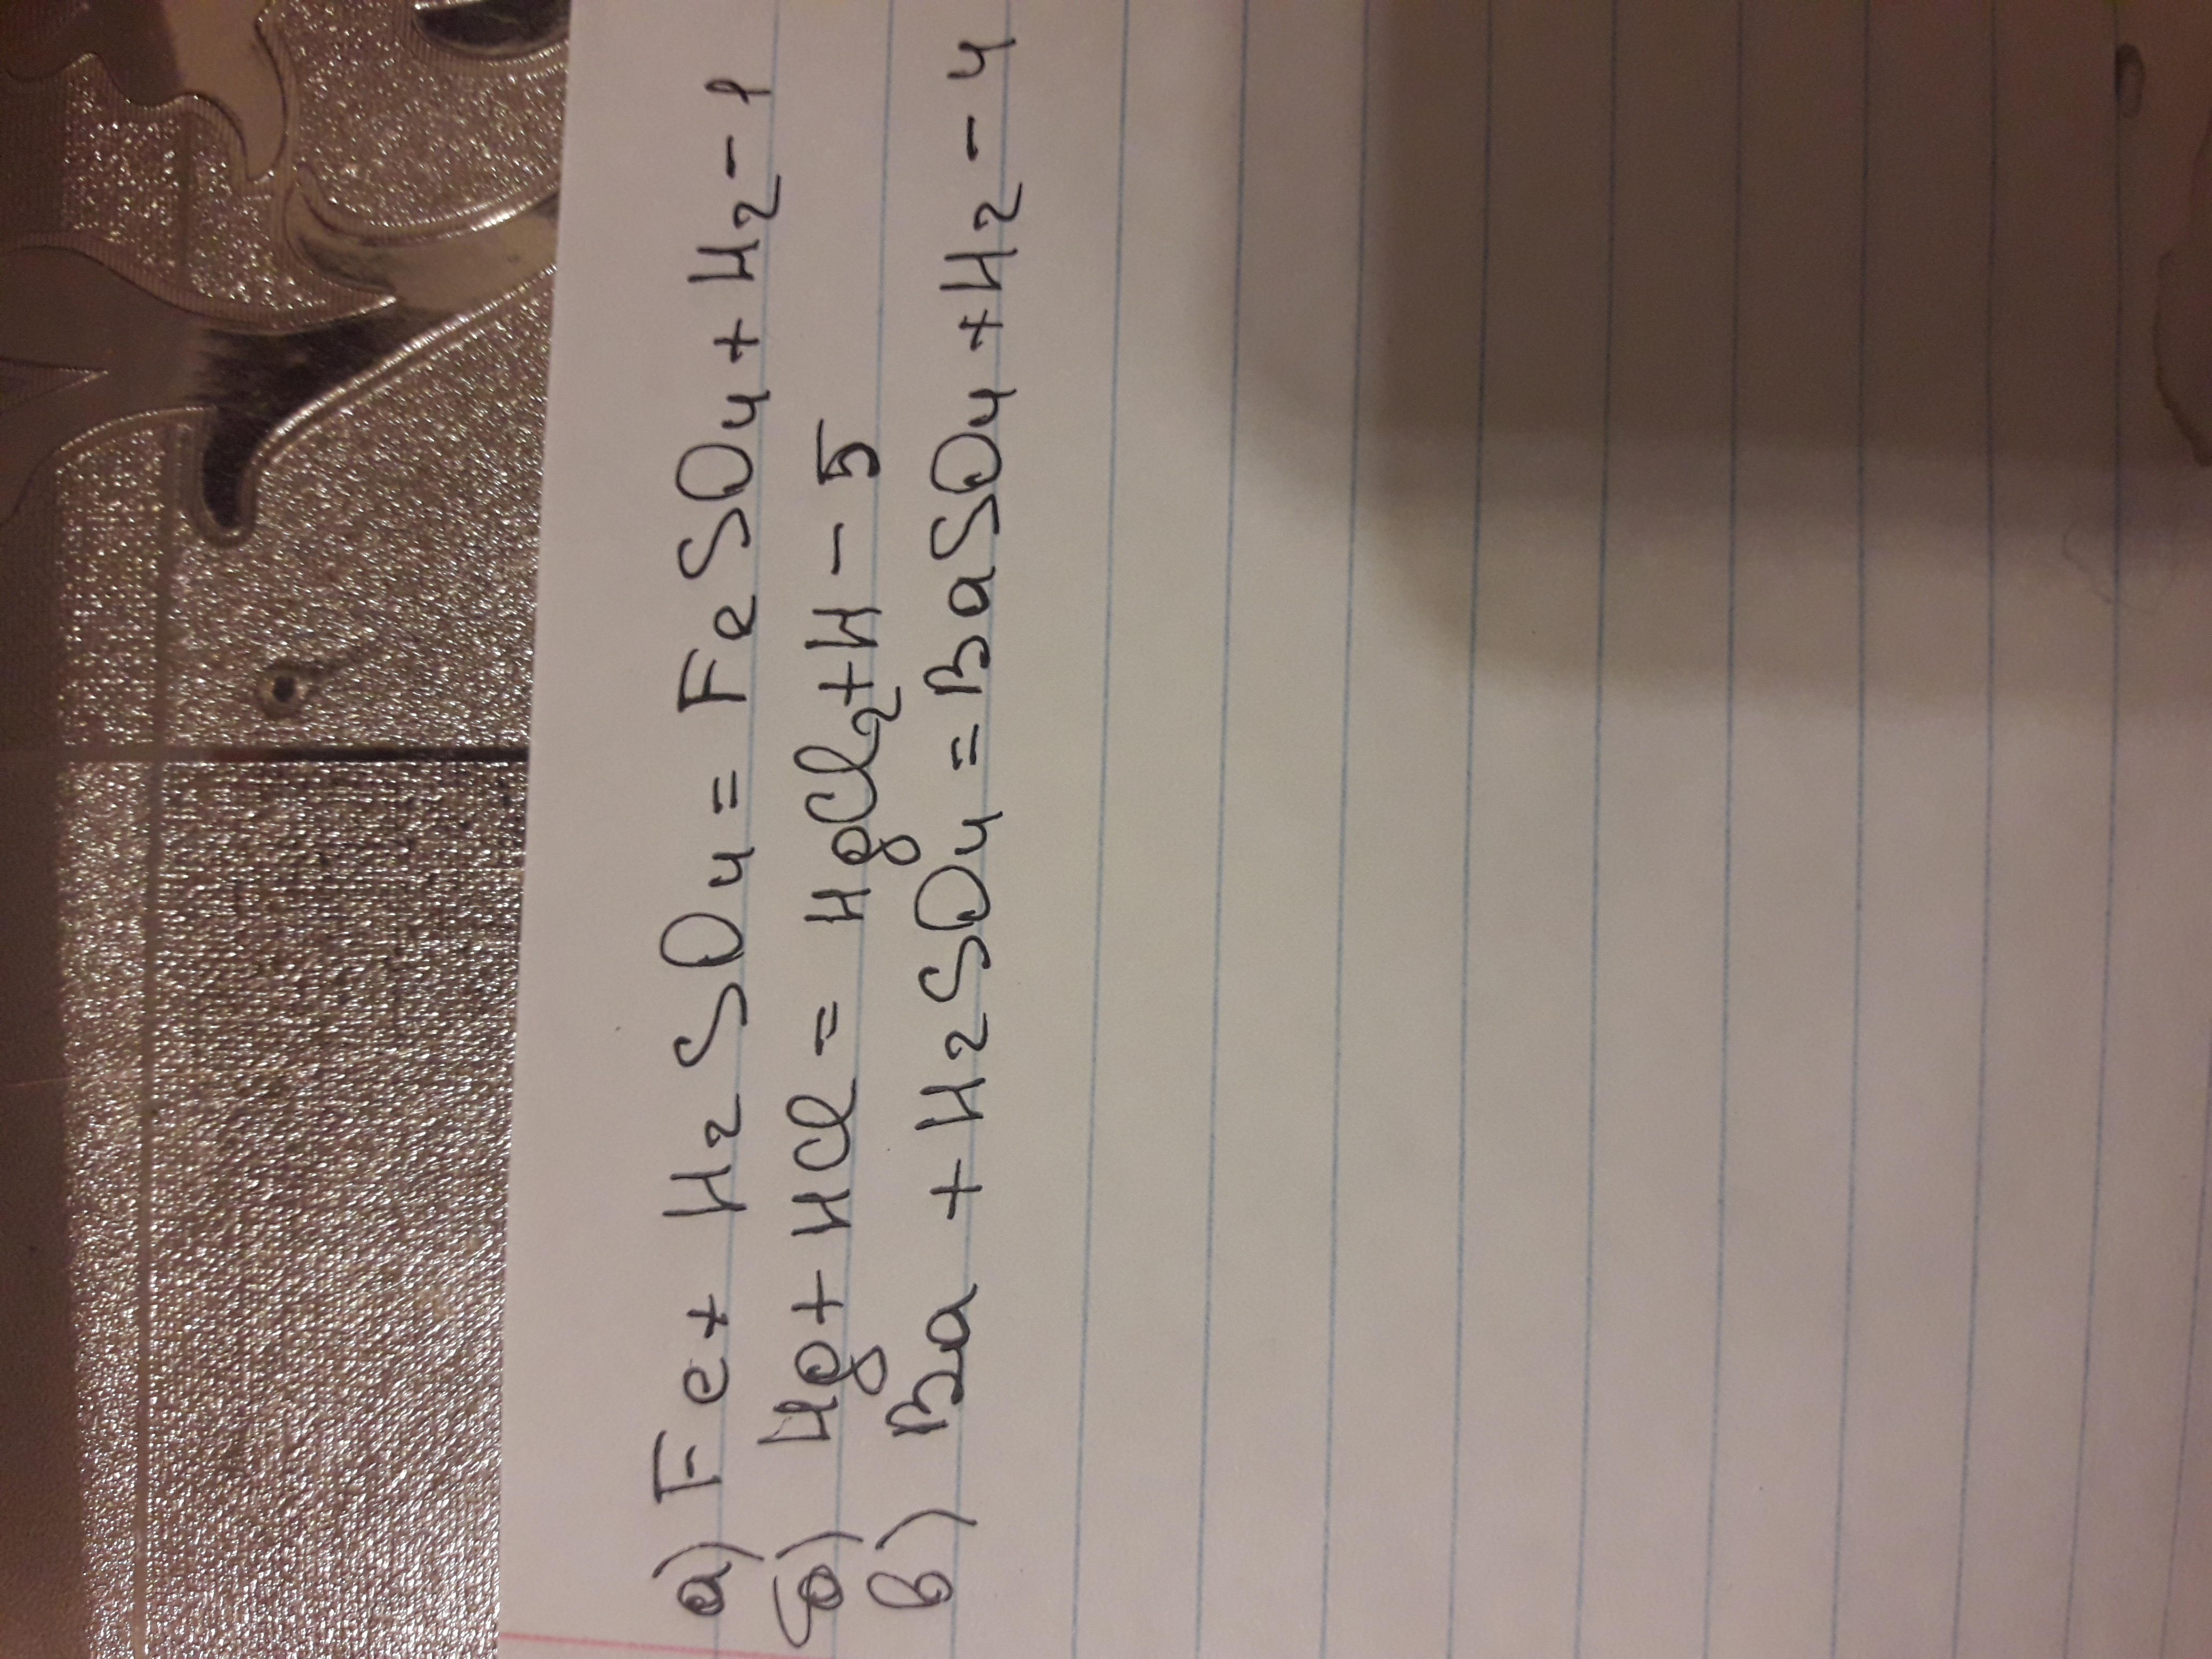 а) Fe + H2SO4 = FeSO4 + H2 - 1
б) Hg + HCl = HgCl2 + H - 5
в) Ba + H2SO4 = BaSO4 + H2 - 4